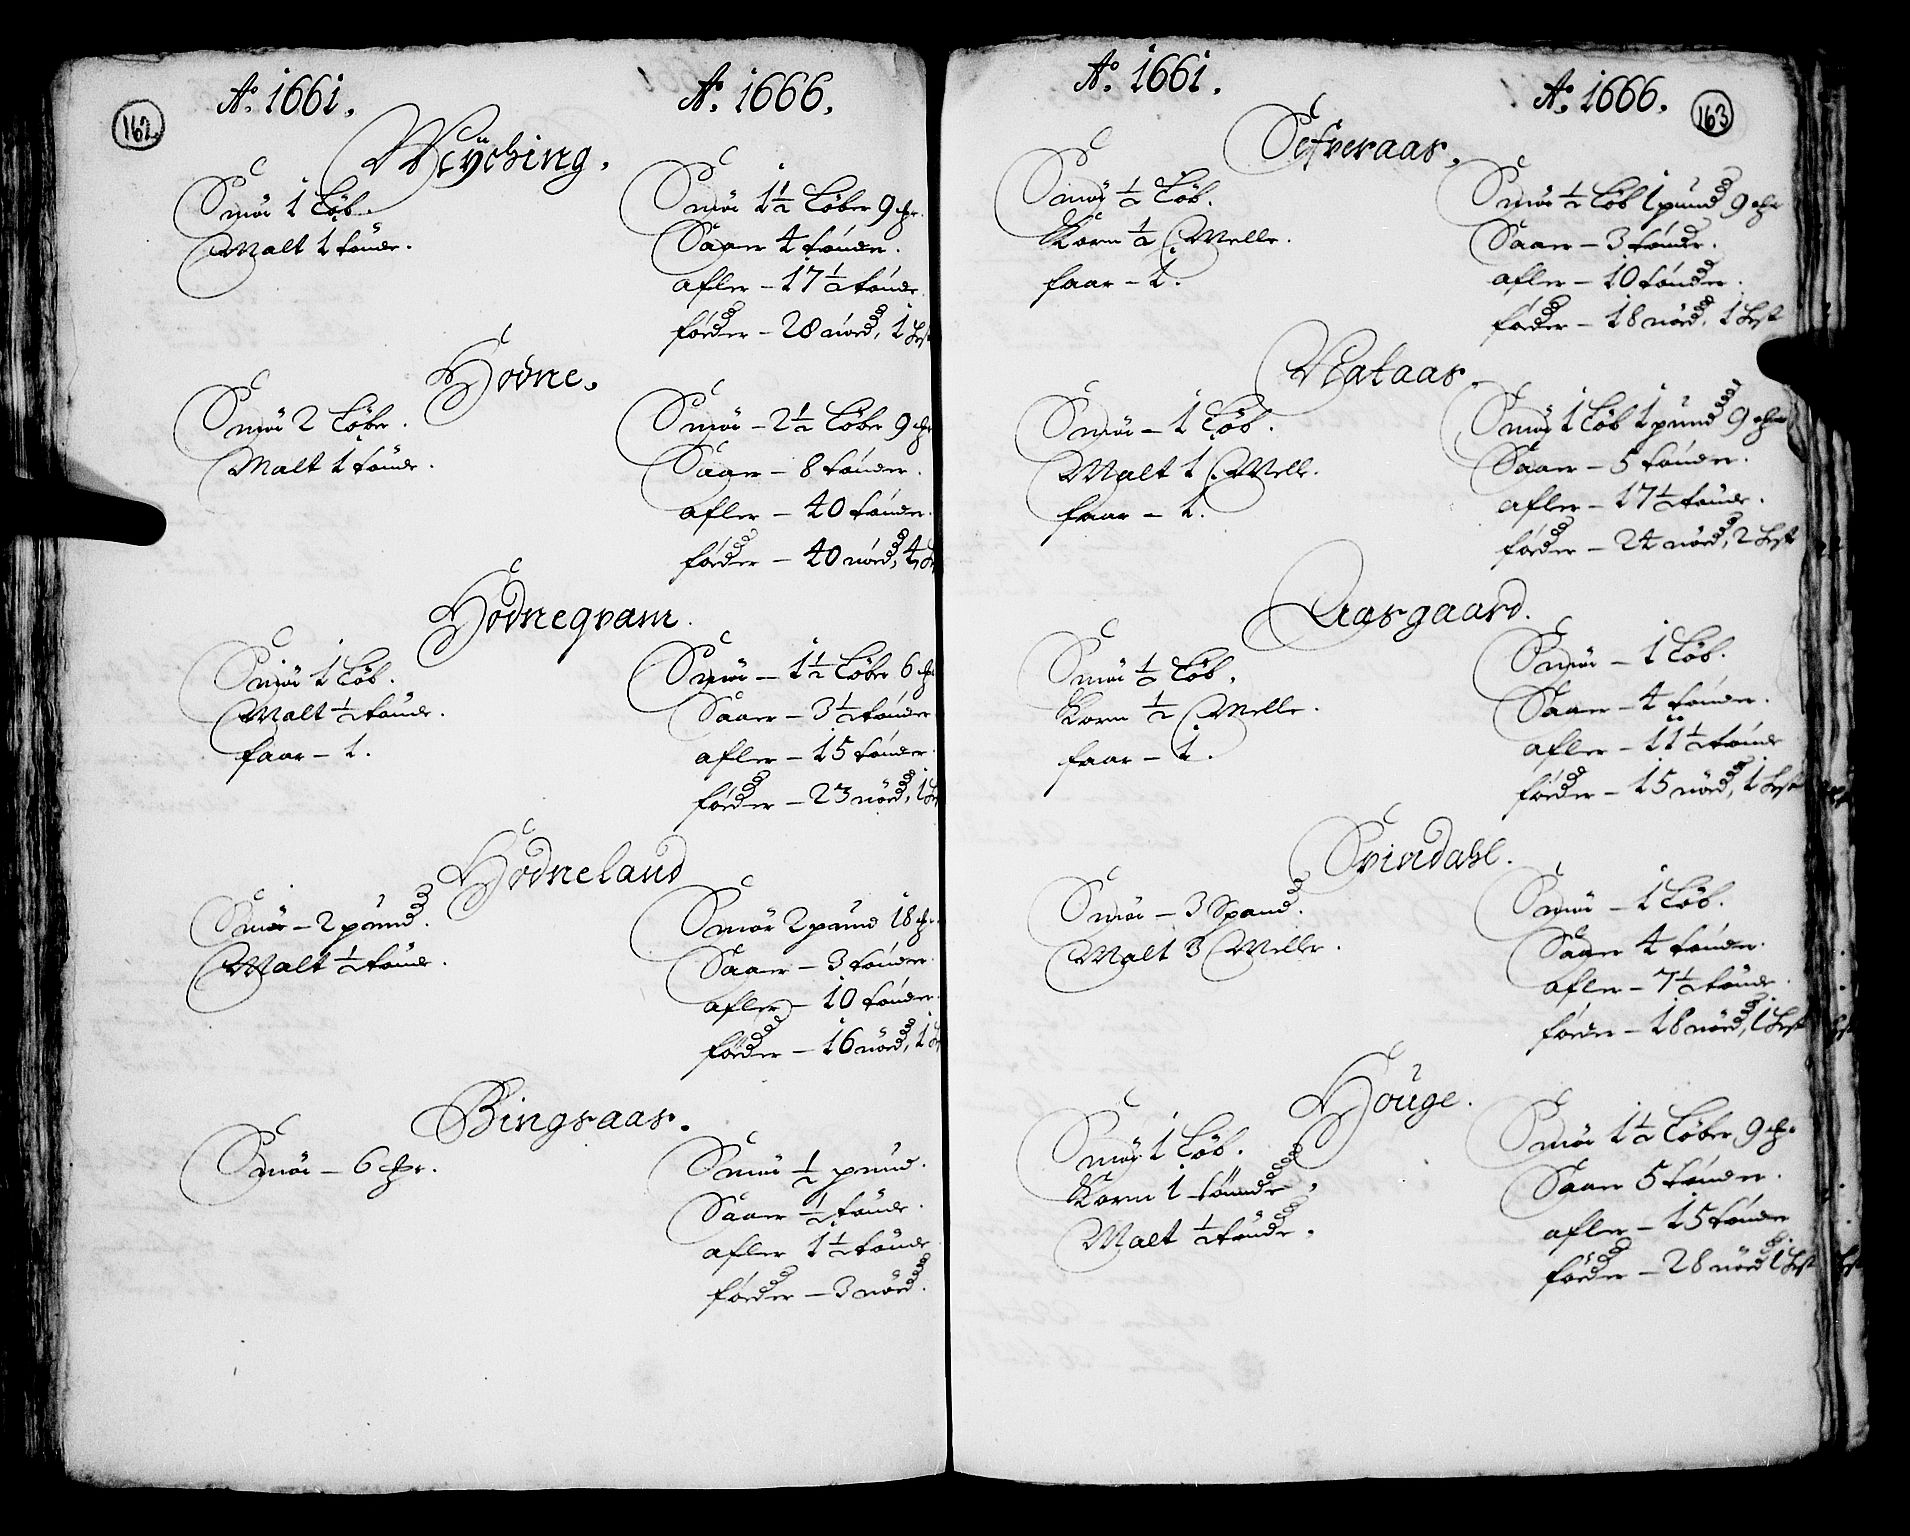 162
Ao. 1661. Ao. 1666.
Mÿching.
Smör 1 Löb.
Malt 1 tönde.
Smör 1½ Löber 9 ℔r.
Saaer 4 tönder.
afler – 17½ tönde
föder – 28 nöed, 1 Hest
Hodne.
Smör 2 Löber.
Malt 1 tönde.
Smör – 2½ Löber 9 ℔r
Saaer – 8 tönder.
afler – 40 tönder.
föder – 40 nöed, 4 He
Hodneqvam.
Smör 1 Löb.
Malt ½ tönde.
faar – 1.
Smör – 1½ Löber 6 ℔
Saaer – 3½ tönder
afler – 15 tönder.
föder – 23 nöed, 1 He
Hodneland
Smör – 2 pund.
Malt ½ tönde.
Smör 2 pund 18 ℔r.
Saaer – 3 tönder.
afler – 10 tönder.
föder – 16 nöed, 1 He
Bingsaas.
Smör – 6 ℔r.
Smör ½ pund.
Saaer ½ tönde.
afler 1½ tönde
föder – 3 nöed.
163
Ao. 1661. Ao. 1666.
Sefveraas.
Smör ½ Löb.
Korn ½ Melle.
faar – 1.
Smör ½ Löb 1 pund 9 ℔r
Saaer – 3 tönder.
afler – 10 tönder.
föder – 18 nöed, 1 Hest
Nataas.
Smör – 1 Löb.
Malt 1 Melle.
faar – 1.
Smör 1 Löb 1 pund 9 ℔r
Saaer – 5 tönder.
afler – 17½ tönde.
föder – 24 nöed, 2 Hest
Aasgaard.
Smör ½ Löb.
Korn ½ Melle.
faar – 1.
Smör – 1 Löb.
Saaer – 4 tönder.
afler – 11½ tönde
föder – 15 nöed, 1 Hest
Svindahl.
Smör – 3 Spand.
Malt 3 Meller.
Smör – 1 Löb.
Saaer 4 tönder.
afler – 7½ tönde.
föder – 18 nöed, 1 Hest
Houge.
Smör 1 Löb.
Korn 1 tönde.
Malt ½ tönde.
Smör 1½ Löber 9 ℔r
Saaer 5 tönder.
afler – 15 tönder
föder – 28 nöed 1 Hest